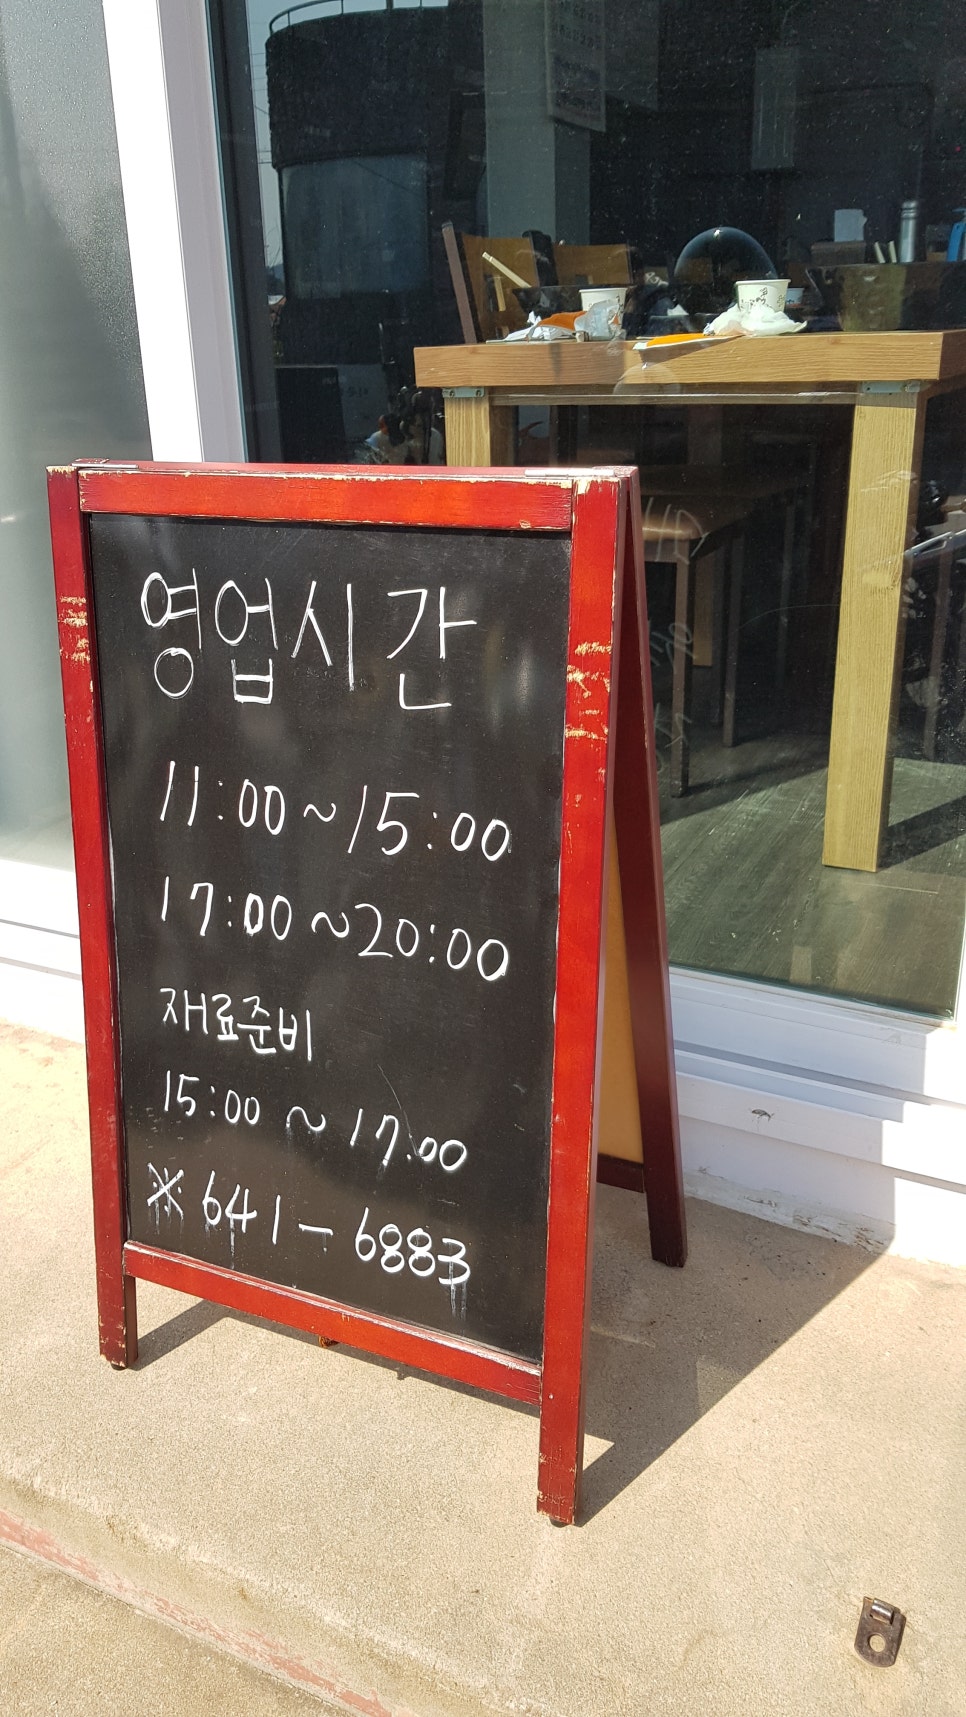 영업시간
11:00~15:00
17:00~20:00
재료준비
15:00 ~ 17.00
※ 641-6883